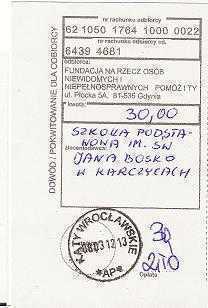 DOWÓD / POKWITOWANIE DLA ODBIORCY
nr rachunku odbiorcy
62 1050 1764 1000 0022
nr rachunku odbiorcy cd.
6439 4681
odbiorca:
FUNDACJA NA RZECZ OSÓB
NIEWIDOMYCH I
NIEPEŁNOSPRAWNYCH POMÓŻ I TY
ul. Płocka 5A, 81-535 Gdynia
kwota:
30,00
zleceniodawca:
SZKOŁA PODSTA-
WOWA IM. SW
JANA BOSKO
W KARCZYCACH
KĄTY WROCŁAWSKIE
03 12 13
*AP*
2,10
Opłata